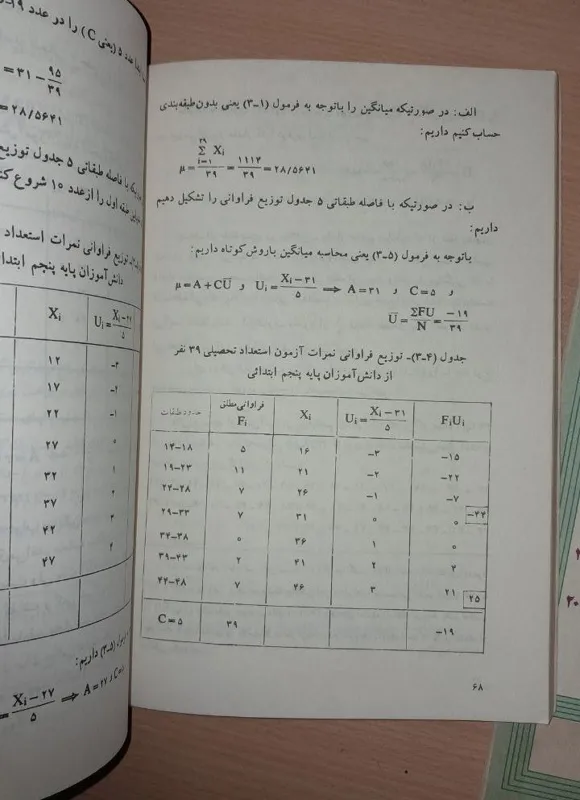 الف: در صورتیکه میانگین را باتوجه به فرمول (۱-۳) یعنی بدون‌طبقه‌بندی
حساب کنیم داریم:
μ = Σ Xi / ۳۹ = ۱۱۱۴ / ۳۹ = ۲۸/۵۶۴۱
۳۹
i=۱
ب: در صورتیکه با فاصله طبقاتی ۵ جدول توزیع فراوانی را تشکیل دهیم
داریم:
باتوجه به فرمول (۵-۳) یعنی محاسبه میانگین باروش‌کوتاه داریم:
μ = A + CŪ و Ui = (Xi − ۳۱) / ۵ ⟹ A = ۳۱ و C = ۵ و
Ū = ΣFU / N = −۱۹ / ۳۹
جدول (۴-۳)- توزیع فراوانی نمرات آزمون استعداد تحصیلی ۳۹ نفر
از دانش‌آموزان پایه پنجم ابتدائی
حدود طبقات | فراوانی مطلق Fi | Xi | Ui = (Xi − ۳۱) / ۵ | FiUi
۱۴-۱۸ | ۵ | ۱۶ | −۳ | −۱۵
۱۹-۲۳ | ۱۱ | ۲۱ | −۲ | −۲۲
۲۴-۲۸ | ۷ | ۲۶ | −۱ | −۷
−۴۴
۲۹-۳۳ | ۷ | ۳۱ | ۰ | ۰
۳۴-۳۸ | ۰ | ۳۶ | ۱ | ۰
۳۹-۴۳ | ۲ | ۴۱ | ۲ | ۴
۴۴-۴۸ | ۷ | ۴۶ | ۳ | ۲۱
۲۵
C = ۵ | ۳۹ | −۱۹
۶۸
(یعنی C) را در عدد ۱۹-
= ۳۱ − ۹۵ / ۳۹
= ۲۸/۵۶۴۱
با فاصله طبقاتی ۵ جدول توزیع
طبقه اول را ازعدد ۱۰ شروع کن
توزیع فراوانی نمرات استعداد
دانش‌آموزان پایه پنجم ابتدا
Xi | Ui = (Xi − ۲۷) / ۵
۱۲ | −۳
۱۷ | −۲
۲۲ | −۱
۲۷ | ۰
۳۲ | ۱
۳۷ | ۲
۴۲ | ۳
۴۷ | ۴
(۵-۳) داریم:
= (Xi − ۲۷) / ۵ ⟹ A = ۲۷ و